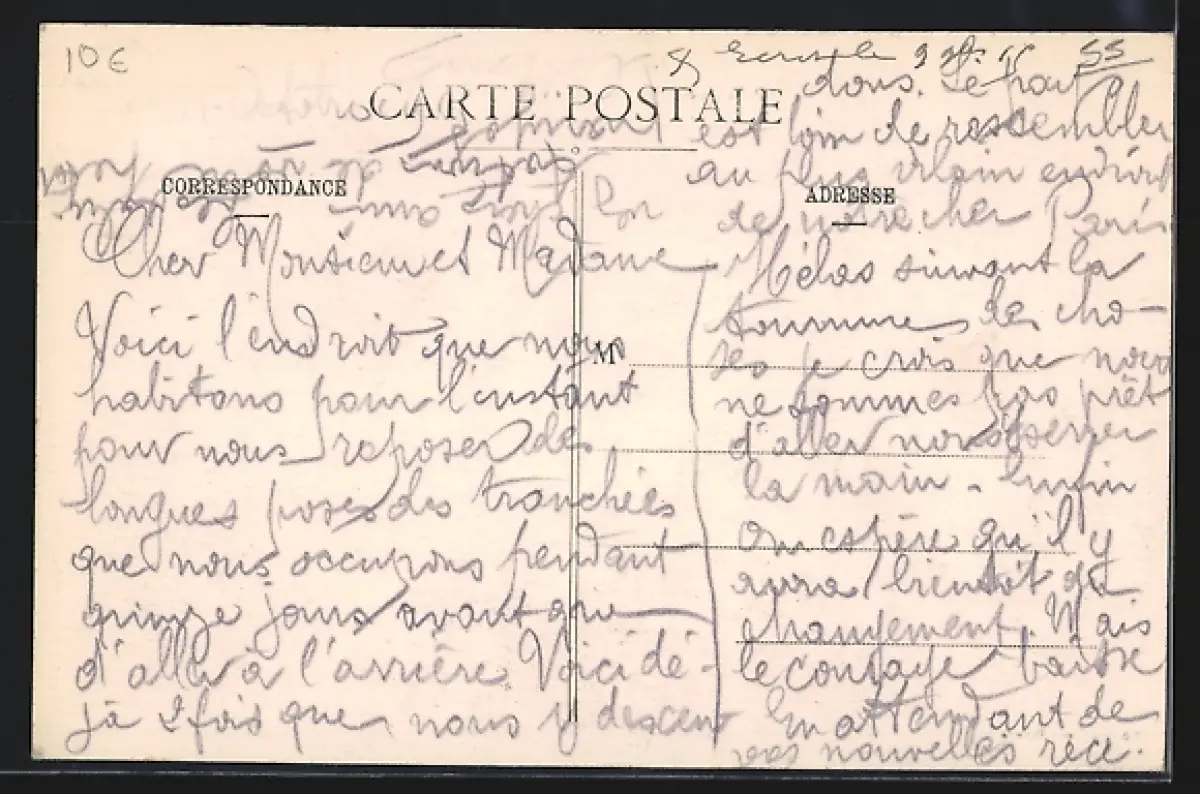 10€
55
CARTE POSTALE
CORRESPONDANCE
ADRESSE
M
Cher Monsieur et Madame
Voici l'endroit que nous
habitons pour l'instant
pour nous reposer des
longues poses des tranchées
que nous occupons pendant
quinze jours avant que
d'aller à l'arrière. Voici dé-
jà 2 fois que nous y descen
dons. Le pays
est loin de ressembler
au plus vilain endroit
de notre cher Paris
Hélas suivant la
tournure des cho-
ses je crois que nous
ne sommes pas prêt
d'aller nous serrer
la main - Enfin
on espère qu'il y
aura bientôt du
changement. Mais
le courage baisse
En attendant de
vos nouvelles rece